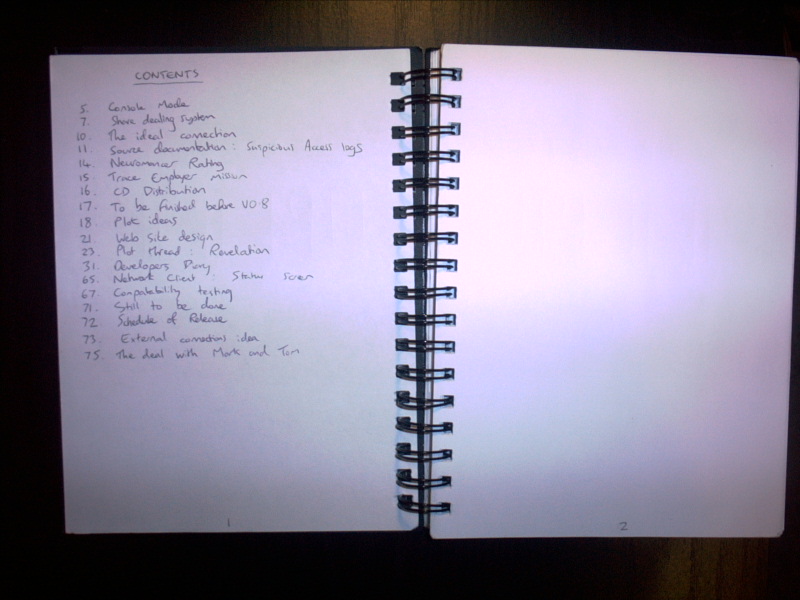 CONTENTS
5. Console Mode
7. Share dealing system
10. The ideal connection
11. Source documentation : Suspicious Access logs
14. Neuromancer Rating
15. Trace Employer mission
16. CD Distribution
17. To be finished before V0.8
18. Plot ideas
21. Web Site design
23. Plot thread : Revelation
31. Developers Diary
65. Network Client : Status Screen
67. Compatability testing
71. Still to be done
72. Schedule of Release
73. External connections idea
75. The deal with Mark and Tom
1
2